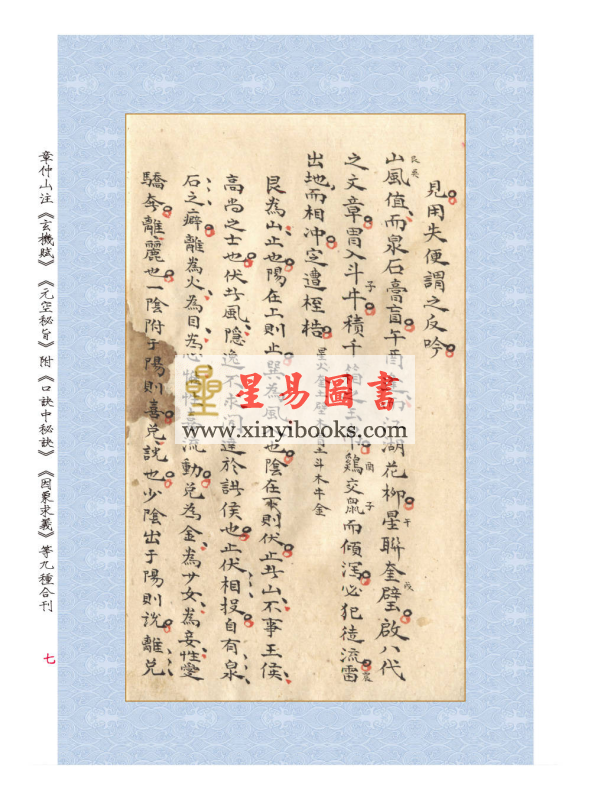 見用失便謂之反吟
艮巽
山風值而泉石膏肓午酉湖花柳星聯奎壁啟八代
午
戌
之文章胃入斗牛積千鷄交鼠而傾瀉必犯徒流雷
子
酉
子
震
出地而相沖定遭桎梏
星火奎土壁土斗木牛金
艮為山止也陽在上則止巽為風也陰在下則伏止山不事王侯
高尚之士也伏風隱逸不求達於諸侯也止伏相投自有泉
石之癖離為火為目為心流動兌為金為少女為妾性變
驕奔離麗也一陰附于陽則喜兌說也少陰出于陽則說離兌
星易圖書
www.xinyibooks.com
章仲山注《玄機賦》《元空秘旨》附《口訣中秘訣》《因象求義》等九種合刊
七